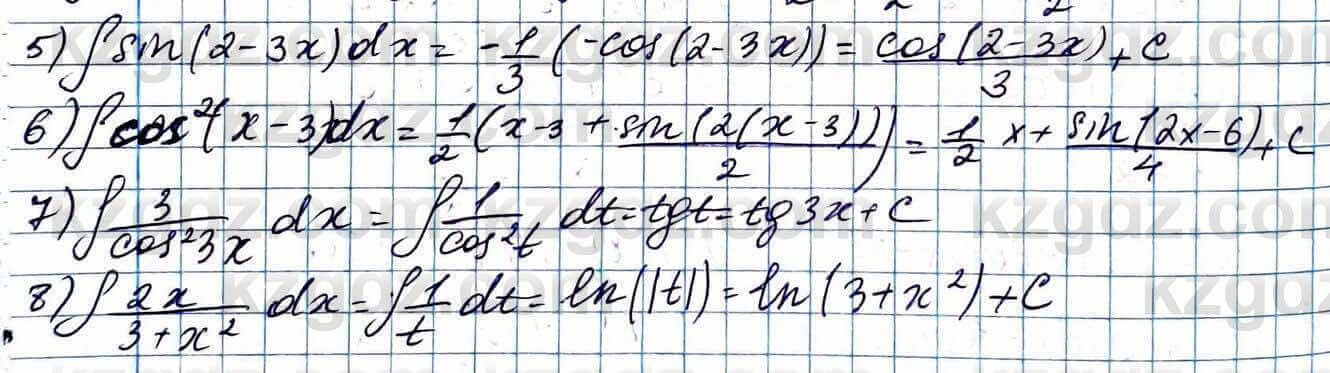 5) ∫ sin(2-3x)dx = -1/3 (-cos(2-3x)) = cos(2-3x)/3 + c
6) ∫ cos²(x-3)dx = 1/2 (x-3 + sin(2(x-3))/2) = 1/2 x + sin(2x-6)/4 + c
7) ∫ 3/cos²3x dx = ∫ 1/cos²t dt = tgt = tg3x + c
8) ∫ 2x/3+x² dx = ∫ 1/t dt = ln(|t|) = ln(3+x²) + c